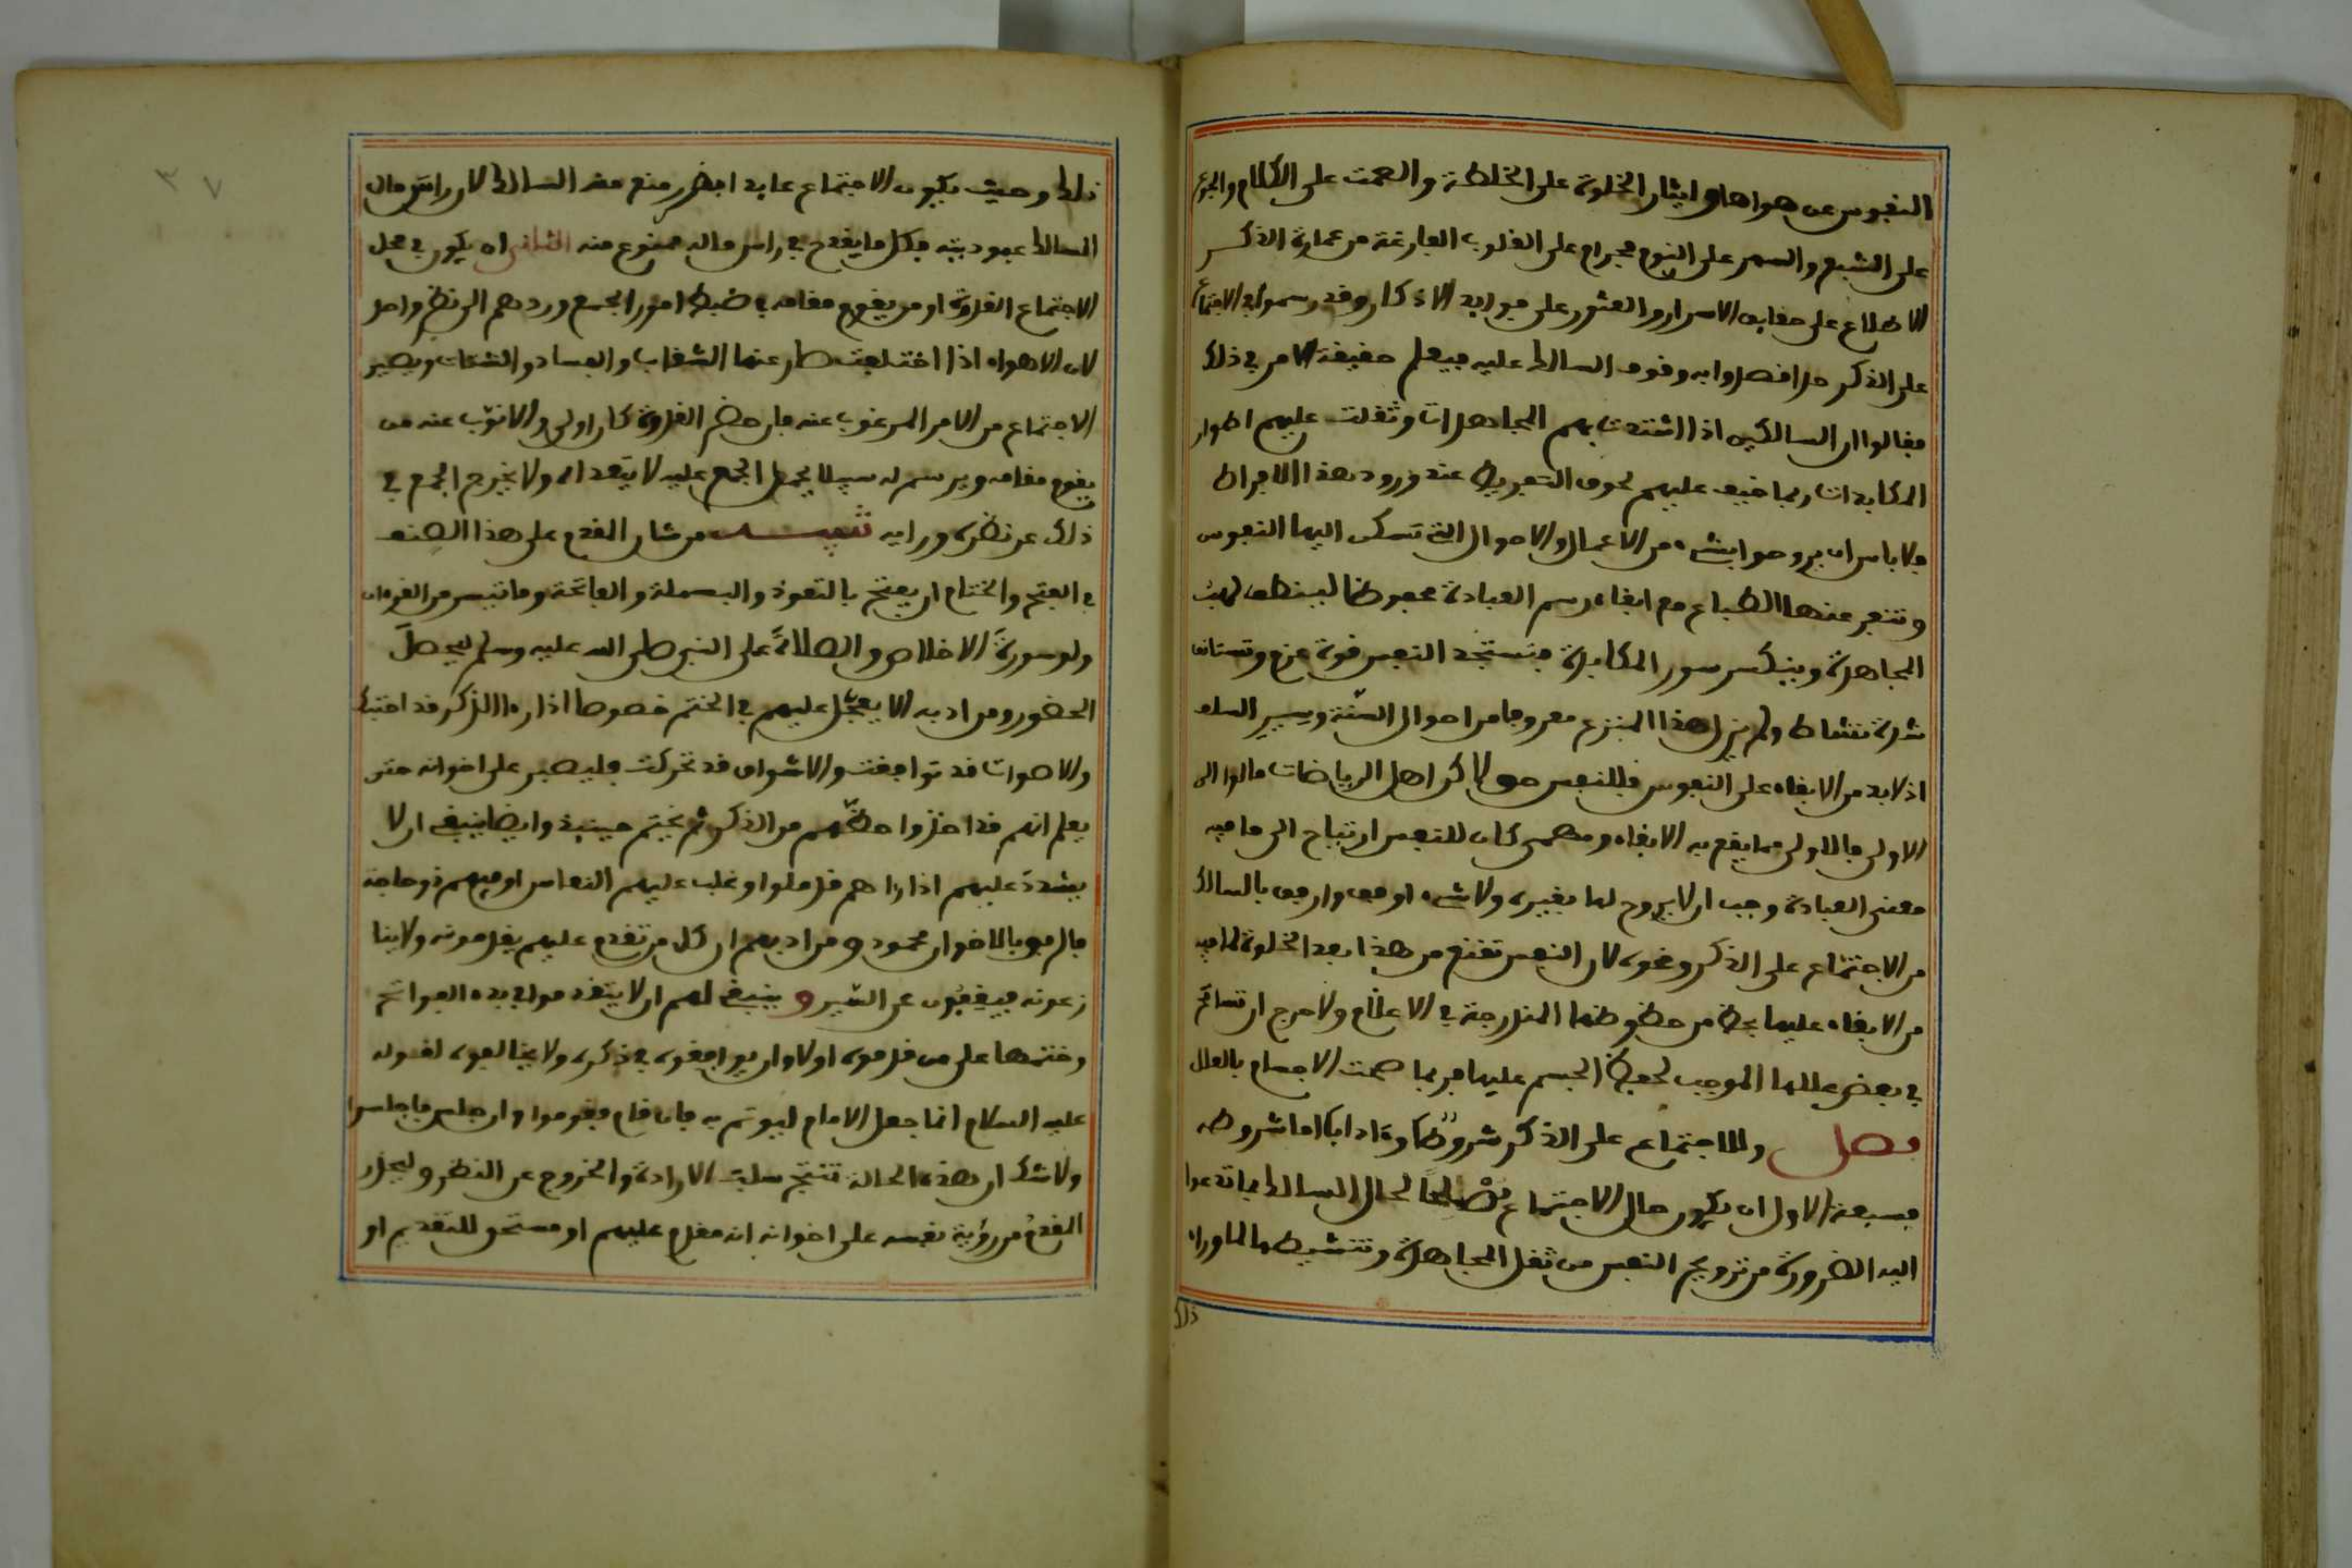 النفوس عن هواها وايثار الخلوة على الخلطة والصمت على الكلام والجوع
على الشبع والسهر على النوم محرام على القلوب الفارغة من عمارة الذكر
الاطلاع على حقايق الاسرار والعثور على فوايد الاذكار وقد رسموا في الاجتماع
على الذكر مرافصدوا به وقوف السالك عليه فيعلم حقيقة الامر في ذلك
فقالوا ان السالكين اذا اشتدت بهم المجاهدات وثقلت عليهم اطوار
المكابدات ربما خيف عليهم لحوق التفريط عند ورود هذا الافراط
فلا باس ان يروحوا بشىء من الاعمال والاحوال التي تسكن اليها النفوس
وتنفر عنها الطباع مع ابقاء رسم العبادة محفوظا لينطفى لهب
المجاهدة وينكسر سور المكابرة فتستجد النفس قوة عزم وتستانف
شدة نشاط ولم يزل هذا المنزع معروفا من احوال السنة وسير السلف
اذ لابد من الابقاء على النفوس فللنفس حق لاكن اهل الرياضات مالوا الى
الاولى فالاولى مما يقع به الابقاء ومهمى كان للنفس ارتياح الى ما فيه
معنى العبادة وجب ان لا يروح لها بغيره ولا شىء اوفق وارفق بالسالك
من الاجتماع على الذكر ونحوه لان النفس تقنع من هذا بعد الخلوة لما فيه
من الابقاء عليها بحظ من حظوظها المندرجة في الاعلام ولا حرج ان تسامح
في بعض عللها الموجب لحفظ الجسم عليها فربما صحت الاجسام بالعلل
فصل وللاجتماع على الذكر شروطا وءادابا اما شروطه
فسبعة الاول ان يكون حال الاجتماع مصلحا لحال السالك فيما تدعوا
اليه الضرورة من ترويح النفس من ثقل المجاهدة وتنشيطها لما وراء
ذلك
٣٧
ذلك وحيث يكون الاجتماع عايدا بضرر منع منه السالك لان راس مال
السالك عبوديته فكل ما يقدح في راس ماله ممنوع منه الثانى ان يكون في محل
الاجتماع القدوة او من يقوم مقامه في ضبط امور الجمع وردهم الى نظر واحد
لان الاهواء اذا اختلفت طار عنها الشغاب والفساد والشتات ويصير
الاجتماع من الامر المرغوب عنه فان حضر القدوة كان اولى والا نوب عنه من
يقوم مقامه ويرسم له سبيلا يحمل الجمع عليه لا يتعداه ولا يخرج الجمع في
ذلك عن نظره ورايه تنبيه من شان المقدم على هذا الصنف
في الفتح والختام ان يفتتح بالتعوذ والبسملة والفاتحة وما تيسر من القرءان
ولو سورة الاخلاص والصلاة على النبي صلى الله عليه وسلم ليحصل
الحضور ومن ادبه الا يعجل عليهم في الختم خصوصا اذا راا الذكر قد اختبك
والاصوات قد توافقت والاشواق قد تحركت فليصبر على اخوانه حتى
يعلم انهم قد اخذوا حظهم من الذكر ثم يختم حينيذ وايضا ينبغي ان لا
يشدد عليهم اذا راهم قد ملوا وغلب عليهم النعاس او فيهم ذو حاجة
فالرفق بالاخوان محمود ومن ادبهم ان كل من تقدم عليهم يقدمونه ولا ينا
زعونه فيقفون عن السير وينبغي لهم ان لا يتقدموا في بدء الفواتح
وختمها على من قدموه اولا وان يوافقوه في ذكره ولا يخالفوه لقوله
عليه السلام انما جعل الامام ليوتم به فان قام فقوموا وان جلس فاجلسوا
ولا شك ان هذه الحالة تنتج سلب الارادة والخروج عن النظر وليحذر
المقدم من رؤية نفسه على اخوانه انه مقدم عليهم او مستحق للتقديم او